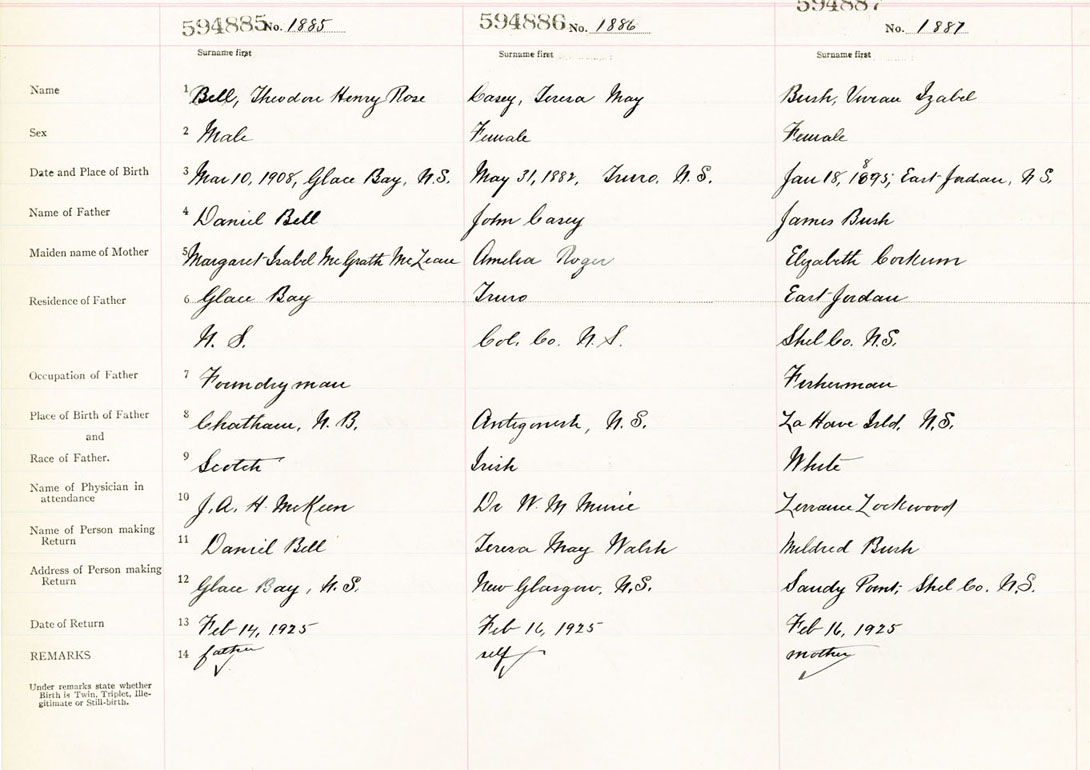 594885 No. 1885 594886 No. 1886 594887 No. 1887
Surname first Surname first Surname first
Name 1 Bell, Theodore Henry Rose Casey, Teresa May Bush, Vivian Izabel
Sex 2 Male Female Female
8
Date and Place of Birth 3 Mar 10, 1908, Glace Bay, N.S. May 31, 1882, Truro, N.S. Jan 18, 1895, East Jordan, N.S.
Name of Father 4 Daniel Bell John Casey James Bush
Maiden name of Mother 5 Margaret Isabel McGrath McLean Amelia Roger Elyabeth Corkum
Residence of Father 6 Glace Bay Truro East Jordan
N. S. Col. Co. N.S. Shel Co. N.S.
Occupation of Father 7 Foundryman Fisherman
Place of Birth of Father 8 Chatham, N.B. Antigonish, N.S. La Have Isld, N.S.
and
Race of Father. 9 Scotch Irish White
Name of Physician in
attendance 10 J.A. H. McKeen Dr W. M Lockwood
Name of Person making
Return 11 Daniel Bell Teresa May Walsh Mildred Bush
Address of Person making
Return 12 Glace Bay, N.S. New Glasgow, N.S. Sandy Point, Shel Co. N.S.
Date of Return 13 Feb 14, 1925 Feb 16, 1925 Feb 16, 1925
REMARKS 14 father self mother
Under remarks state whether
Birth is Twin, Triplet, Ille-
gitimate or Still-birth.